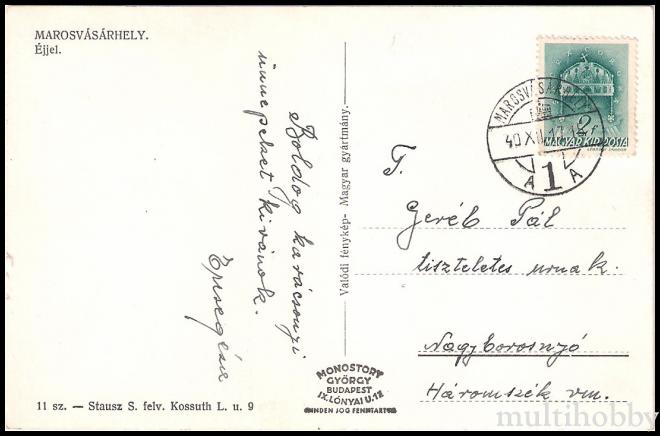 MAROSVÁSÁRHELY.
Éjjel.
Boldog karácsonyi
ünnepeket kivánok.
Valódi fénykép- Magyar gyártmány.
MONOSTORY
GYÖRGY
BUDAPEST
IX. LÓNYAI U. 12
MINDEN JOG FENNTARTVA
11 sz. — Stausz S. felv. Kossuth L. u. 9
MAROSVÁSÁRHELY
40 XII
A 1 A
2f
MAGYAR KIR. POSTA
T.
Geréb Pál
tiszteletes urnak.
Nagyborosnyó
Háromszék vm.
multihobby